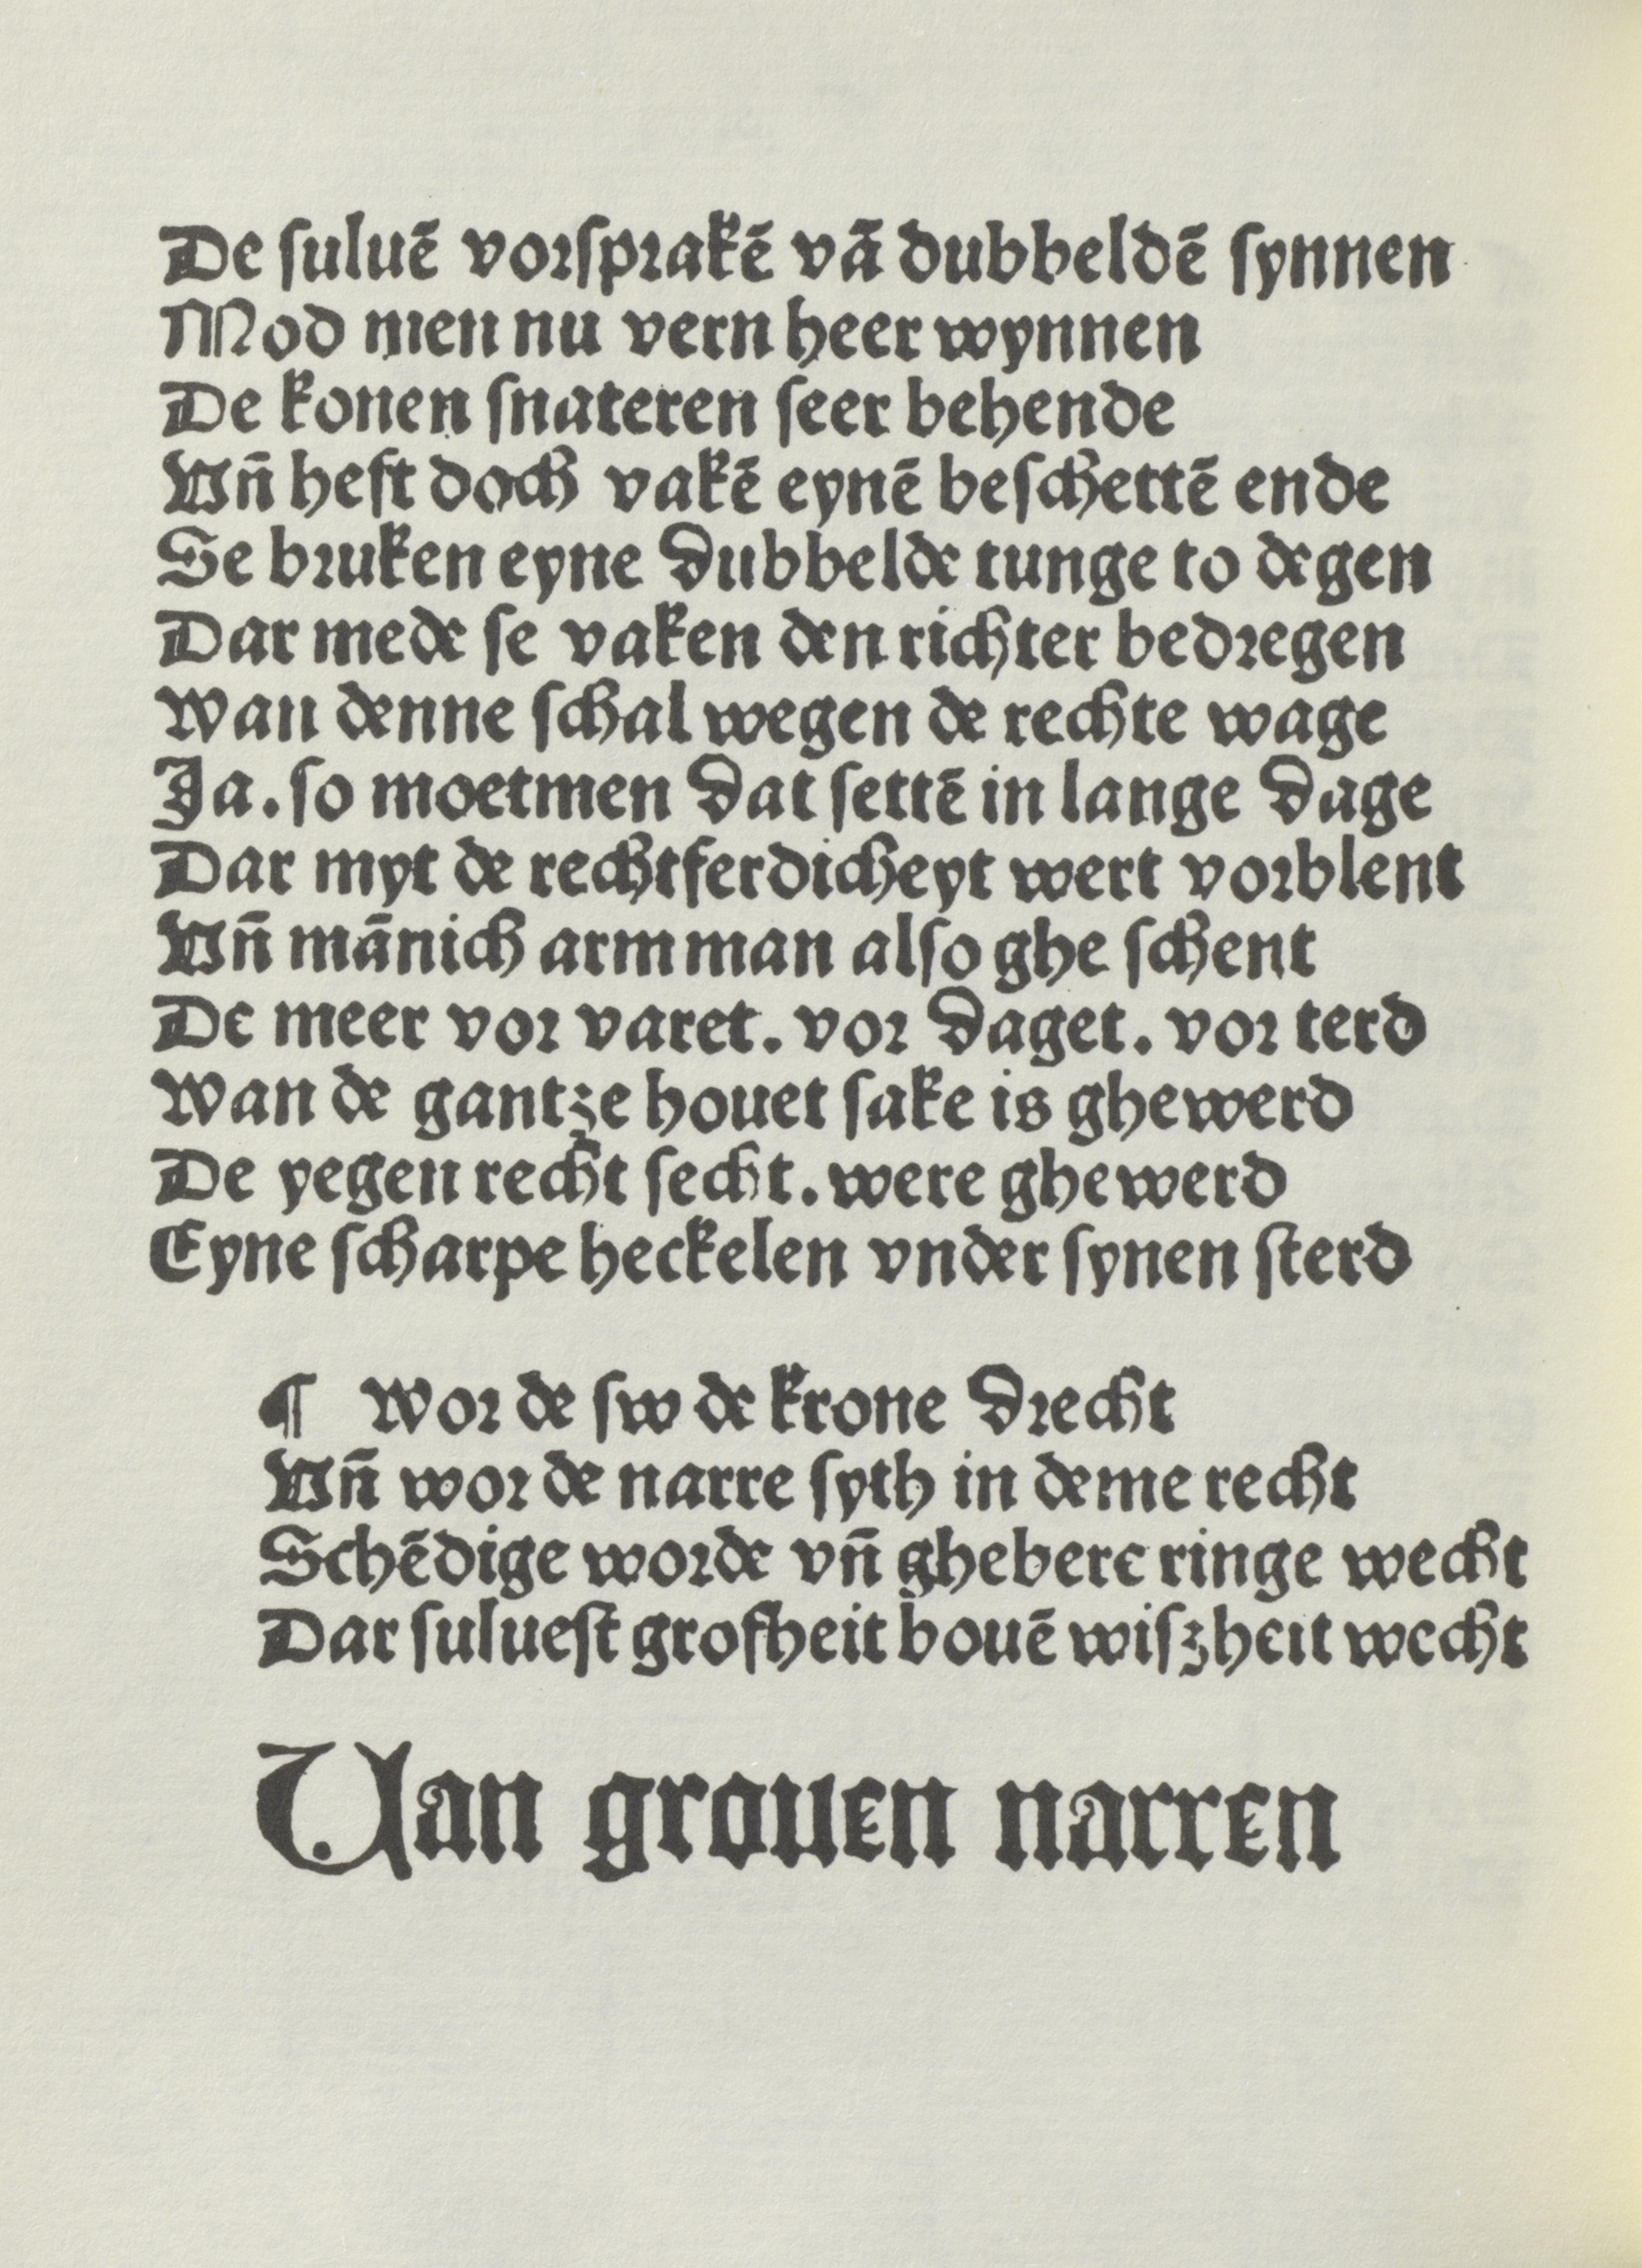 De ſuluē vorſprakē vā dubbeldē ſynnen
Mod men nu vern heer wynnen
De konen ſnateren ſeer behende
Vn̄ heft doch vakē eynē beſchettē ende
Se bruken eyne dubbelde tunge to degen
Dar mede ſe vaken den richter bedregen
Wan denne ſchal wegen de rechte wage
Ja. ſo moetmen dat ſettē in lange dage
Dar myt de rechtferdicheyt wert vorblent
Vn̄ mānich arm man alſo ghe ſchent
De meer vor varet. vor daget. vor terd
Wan de gantze houet ſake is ghewerd
De yegen recht ſecht. were ghewerd
Eyne ſcharpe heckelen vnder ſynen ſterd
¶ Wor de ſw de krone drecht
Vn̄ wor de narre ſyth in deme recht
Schēdige worde vn̄ ghebere ringe wecht
Dar ſulueſt grofheit bouē wiſzheit wecht
Van grouen narren